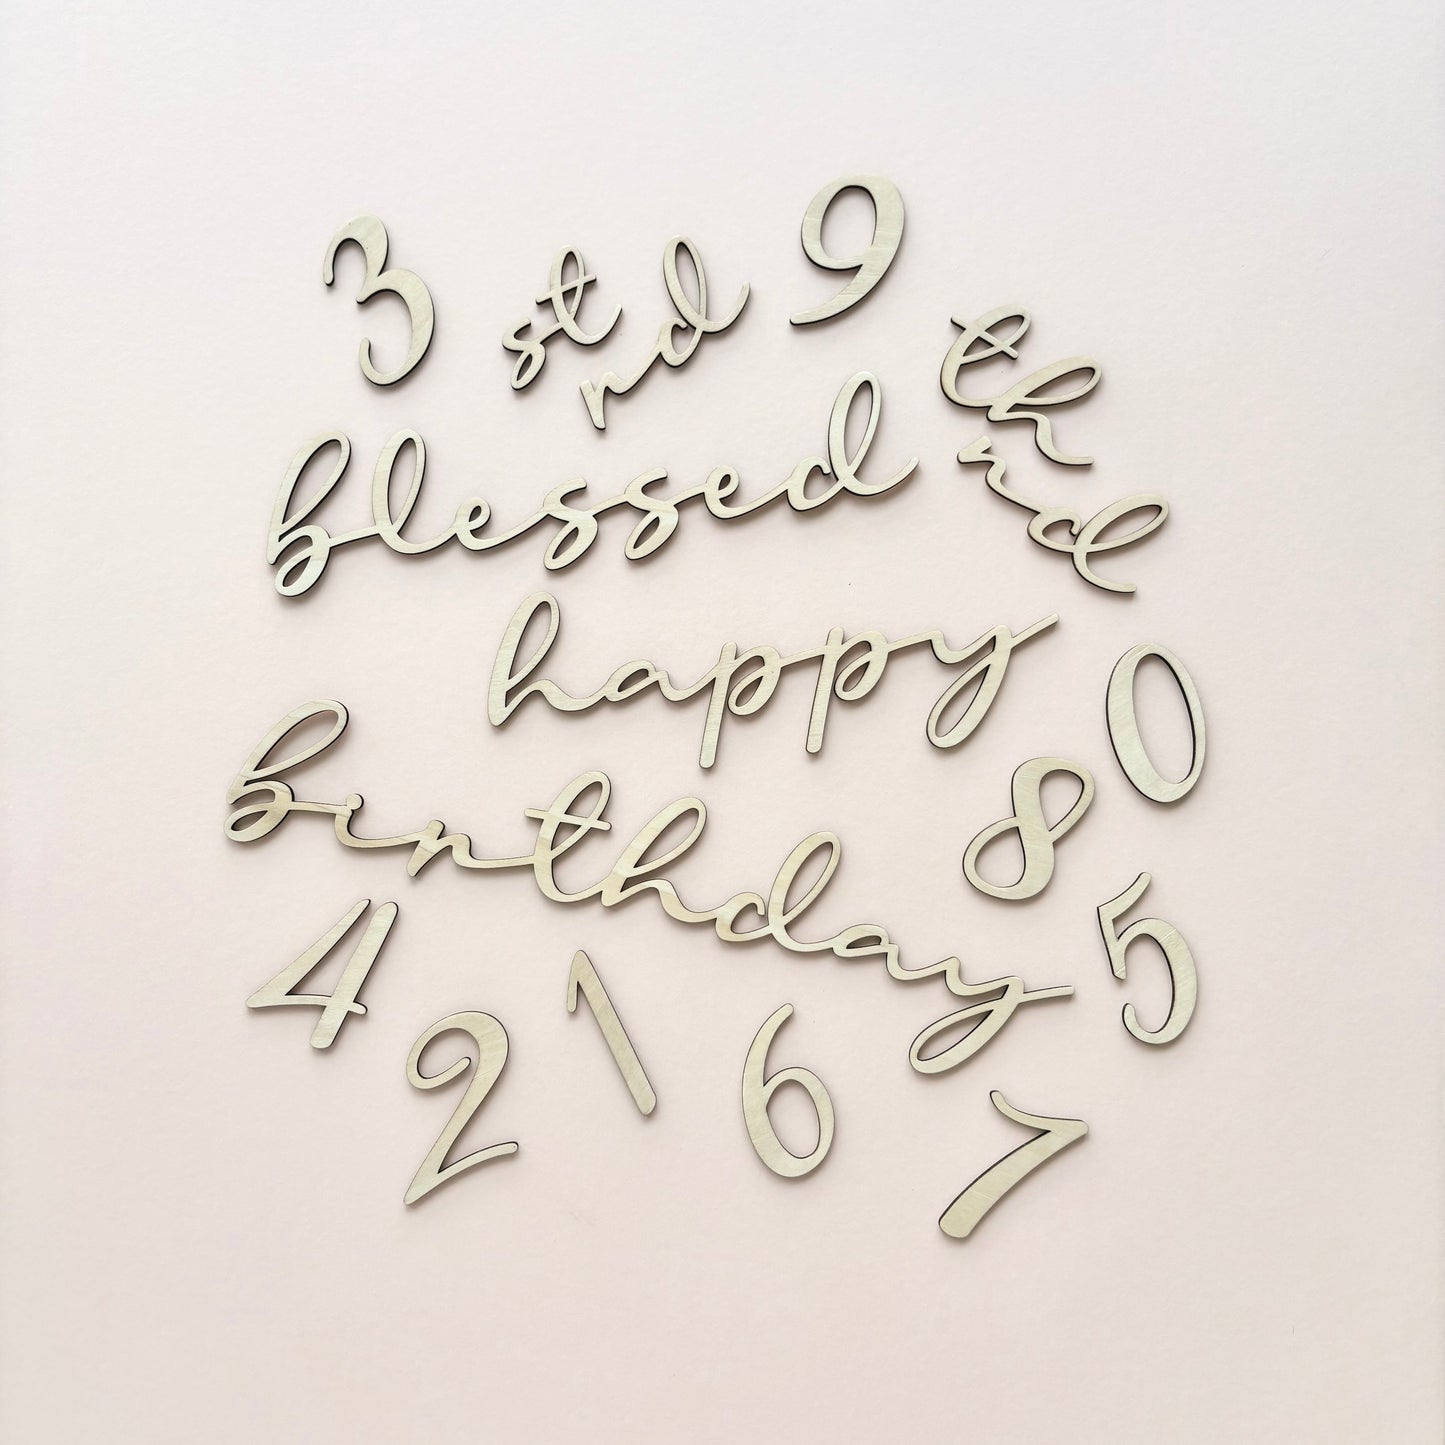 3 st rd 9
th
nd
blessed
happy
0
birthday
8
5
4
2 1 6 7